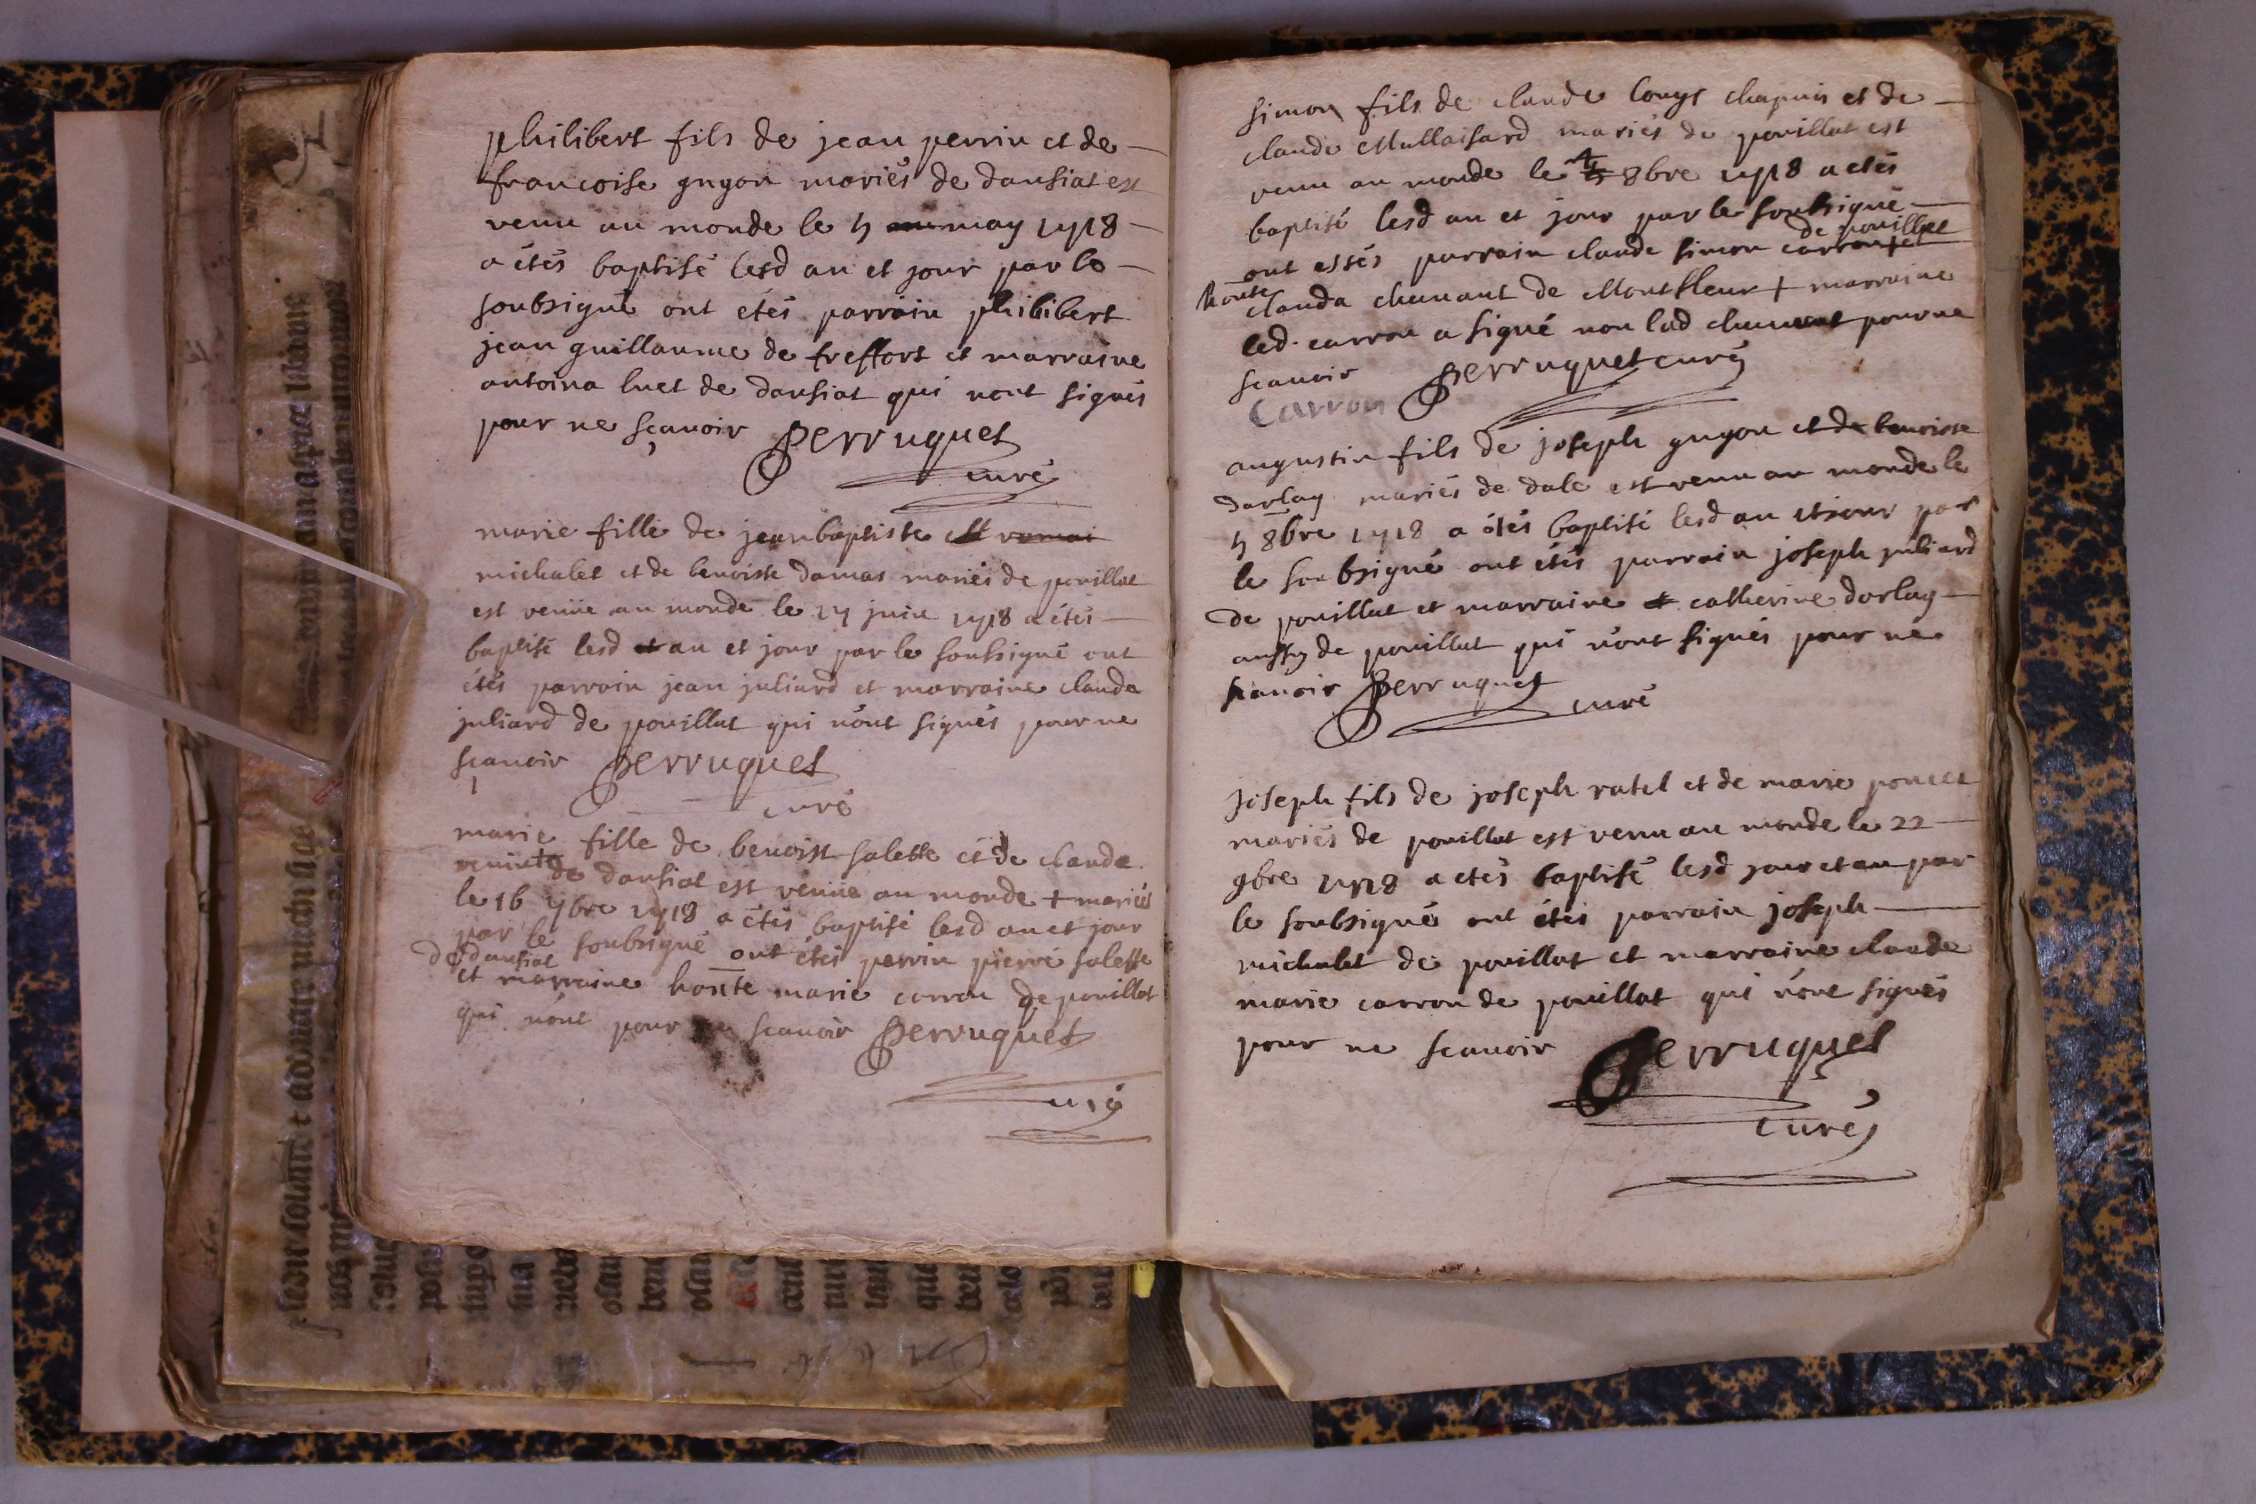 philibert fils de jean perrin et de
francoise guyon mariés de dansiat est
venu au monde le 5 may 1718
a étés baptisé lesd an et jour par le
soubsigné ont étés parrain philibert
jean guillaume de treffort et marraine
antoina luet de dansiat qui nont signés
pour ne sçauoir Perruquet
curé
marie fille de jeanbaptiste
michalet et de benoiste damas mariés de pouillat
est venüe au monde le 17 juin 1718 a étés
baptisé lesd an et jour par le soubsigné ont
étés parrain jean juliard et marraine clauda
juliard de pouillat qui nont signés pour ne
sçauoir Perruquet
curé
marie fille de benoist salesse et de clauda
de dansiat est venüe au monde + mariés
le 16 7bre 1718 a étés baptisé lesd an et jour
par le soubsigné ont étés perrin pierre salesse
de dansiat
et marraine honte marie carron de pouillat
qui nont pour sçauoir Perruquet
curé
simon fils de claude louys chapuis et de
claude Mullaisard mariés de pouillat est
venu au monde le 4 8bre 1718 a étés
baptisé lesd an et jour par le soubsigné
de pouillat
ont estés parrain claude simon carron et
honte clauda chauuant de Montfleur + marraine
led. carron a signé non lad chauuant pour ne
scauoir Perruquet curé
Carron
augustin fils de joseph guyon et de benoiste
darlay mariés de dalé est venu au monde le
5 8bre 1718 a étés baptisé lesd an et jour par
le soubsigné ont étés parrain joseph juliard
de pouillat et marraine catherine dorlay
aussy de pouillat qui nont signés pour ne
scauoir Perruquet
curé
joseph fils de joseph ratel et de marie poncet
mariés de pouillat est venu au monde le 22
9bre 1718 a étés baptisé lesd jour et an par
le soubsigné ont étés parrain joseph
michalet de pouillat et marraine claude
marie carron de pouillat qui nont signés
pour ne scauoir Perruquet
curé